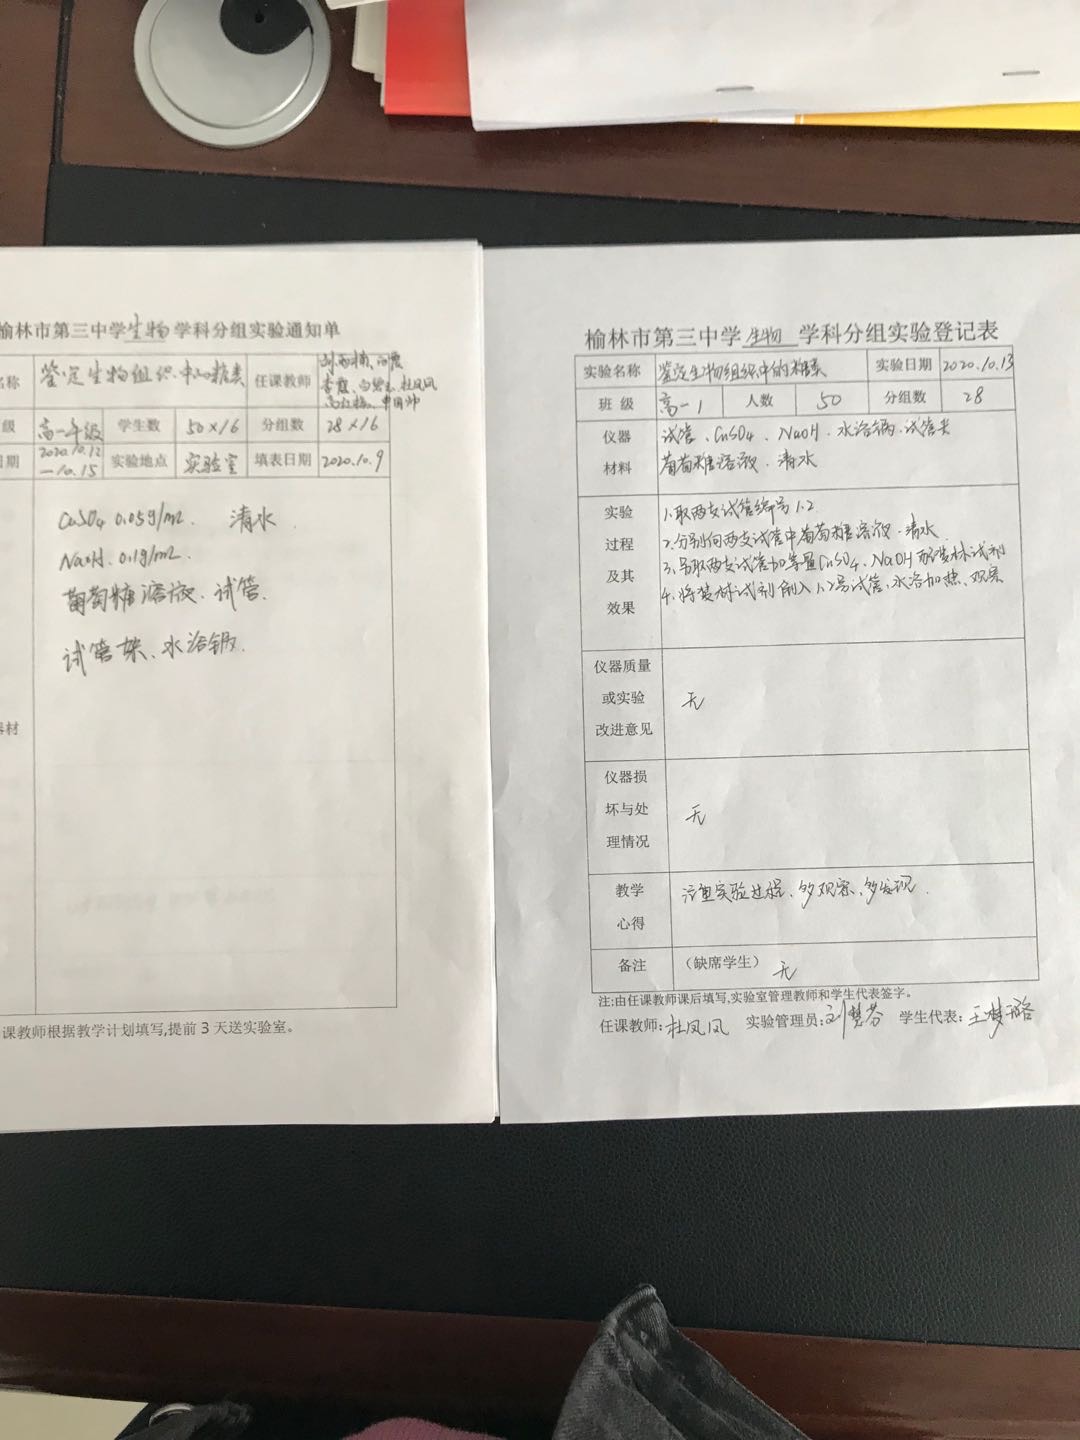 榆林市第三中学生物学科分组实验通知单
名称 鉴定生物组织中的糖类 任课教师
级 高一年级 学生数 50×16 分组数 28×16
日期 2020.10.12—10.15 实验地点 实验室 填表日期 2020.10.9
CuSO4 0.05g/mL. 清水.
NaOH. 0.1g/mL.
葡萄糖溶液. 试管.
试管架、水浴锅.
器材
课教师根据教学计划填写,提前 3 天送实验室。
榆林市第三中学 生物 学科分组实验登记表
实验名称 鉴定生物组织中的糖类 实验日期 2020.10.13
班 级 高一1 人数 50 分组数 28
仪器 试管、CuSO4、NaOH.水浴锅.试管夹
材料 葡萄糖溶液.清水
实验 1.取两支试管编号1.2
过程 2.分别向两支试管中葡萄糖溶液.清水
及其 3.另取两支试管加等量CuSO4、NaOH配斐林试剂
效果 4.将斐林试剂倒入1.2号试管,水浴加热,观察
仪器质量
或实验 无
改进意见
仪器损
坏与处 无
理情况
教学 注重实验过程、多观察、多发现.
心得
备注 (缺席学生) 无
注:由任课教师课后填写,实验室管理教师和学生代表签字。
任课教师:杜凤凤 实验管理员:刘慧芬 学生代表:王梦璐